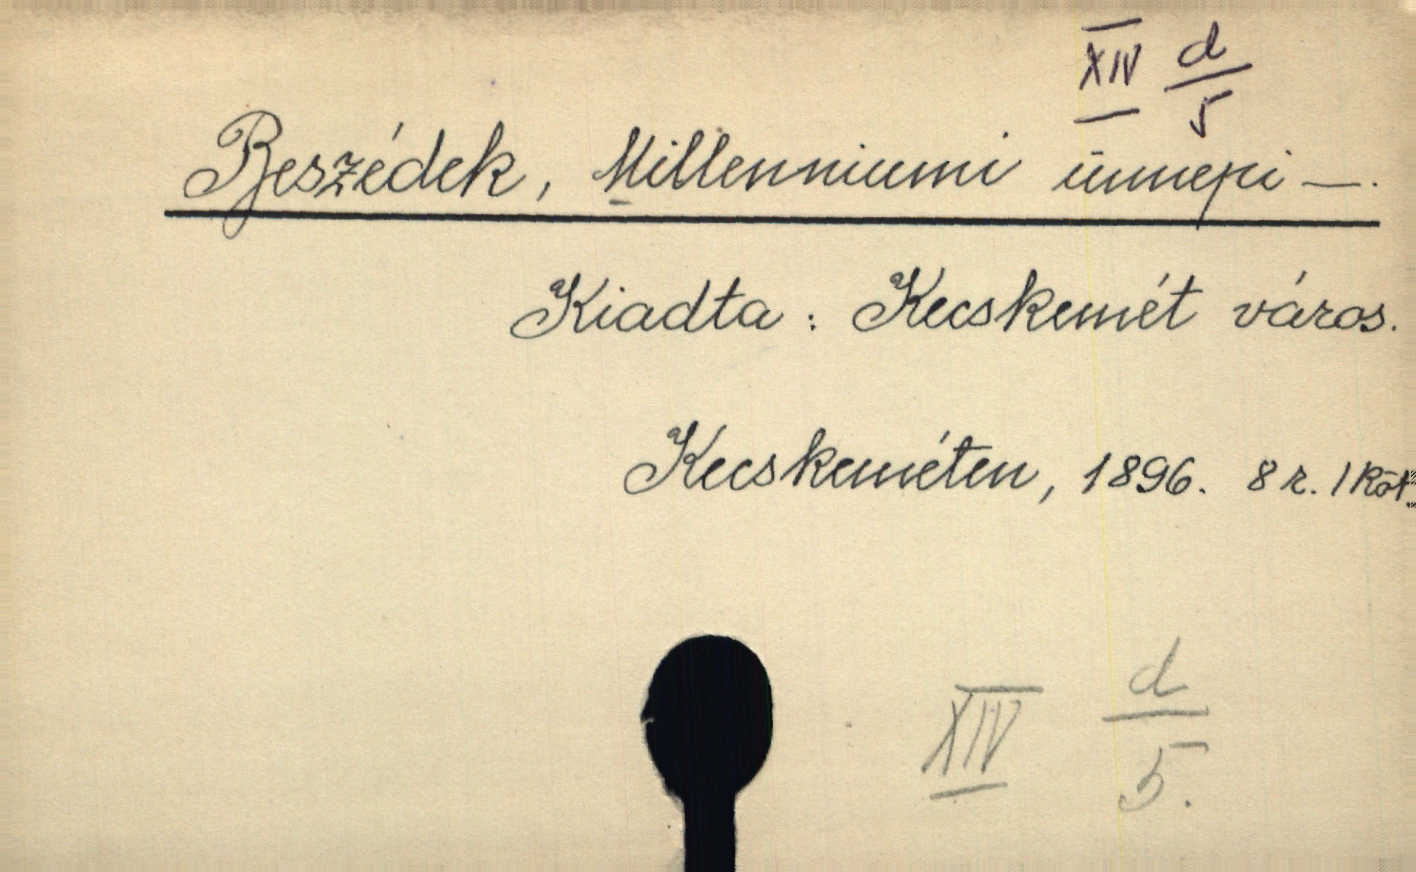 XIV d/5
Beszédek, Millenniumi ünnepi —.
Kiadta: Kecskemét város.
Kecskeméten, 1896. 8 r. 1 köt.
XIV d/5.